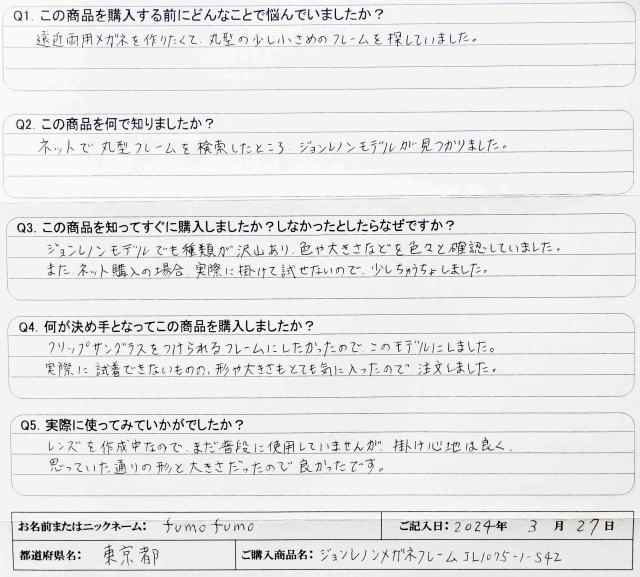 Q1. この商品を購入する前にどんなことで悩んでいましたか？
遠近両用メガネを作りたくて、丸型の少し小さめのフレームを探していました。
Q2. この商品を何で知りましたか？
ネットで丸型フレームを検索したところ、ジョンレノンモデルが見つかりました。
Q3. この商品を知ってすぐに購入しましたか？しなかったとしたらなぜですか？
ジョンレノンモデルでも種類が沢山あり、色や大きさなどを色々と確認していました。
また、ネット購入の場合、実際に掛けて試せないので、少しちゅうちょしました。
Q4. 何が決め手となってこの商品を購入しましたか？
クリップサングラスをつけられるフレームにしたかったので、このモデルにしました。
実際に試着できないものの、形や大きさもとても気に入ったので、注文しました。
Q5. 実際に使ってみていかがでしたか？
レンズを作成中なので、まだ普段に使用していませんが、掛け心地は良く、
思っていた通りの形と大きさだったので良かったです。
お名前またはニックネーム： fumofumo ご記入日：2024年 3月 27日
都道府県名： 東京都 ご購入商品名： ジョンレノンメガネフレーム JL1075-1-S42